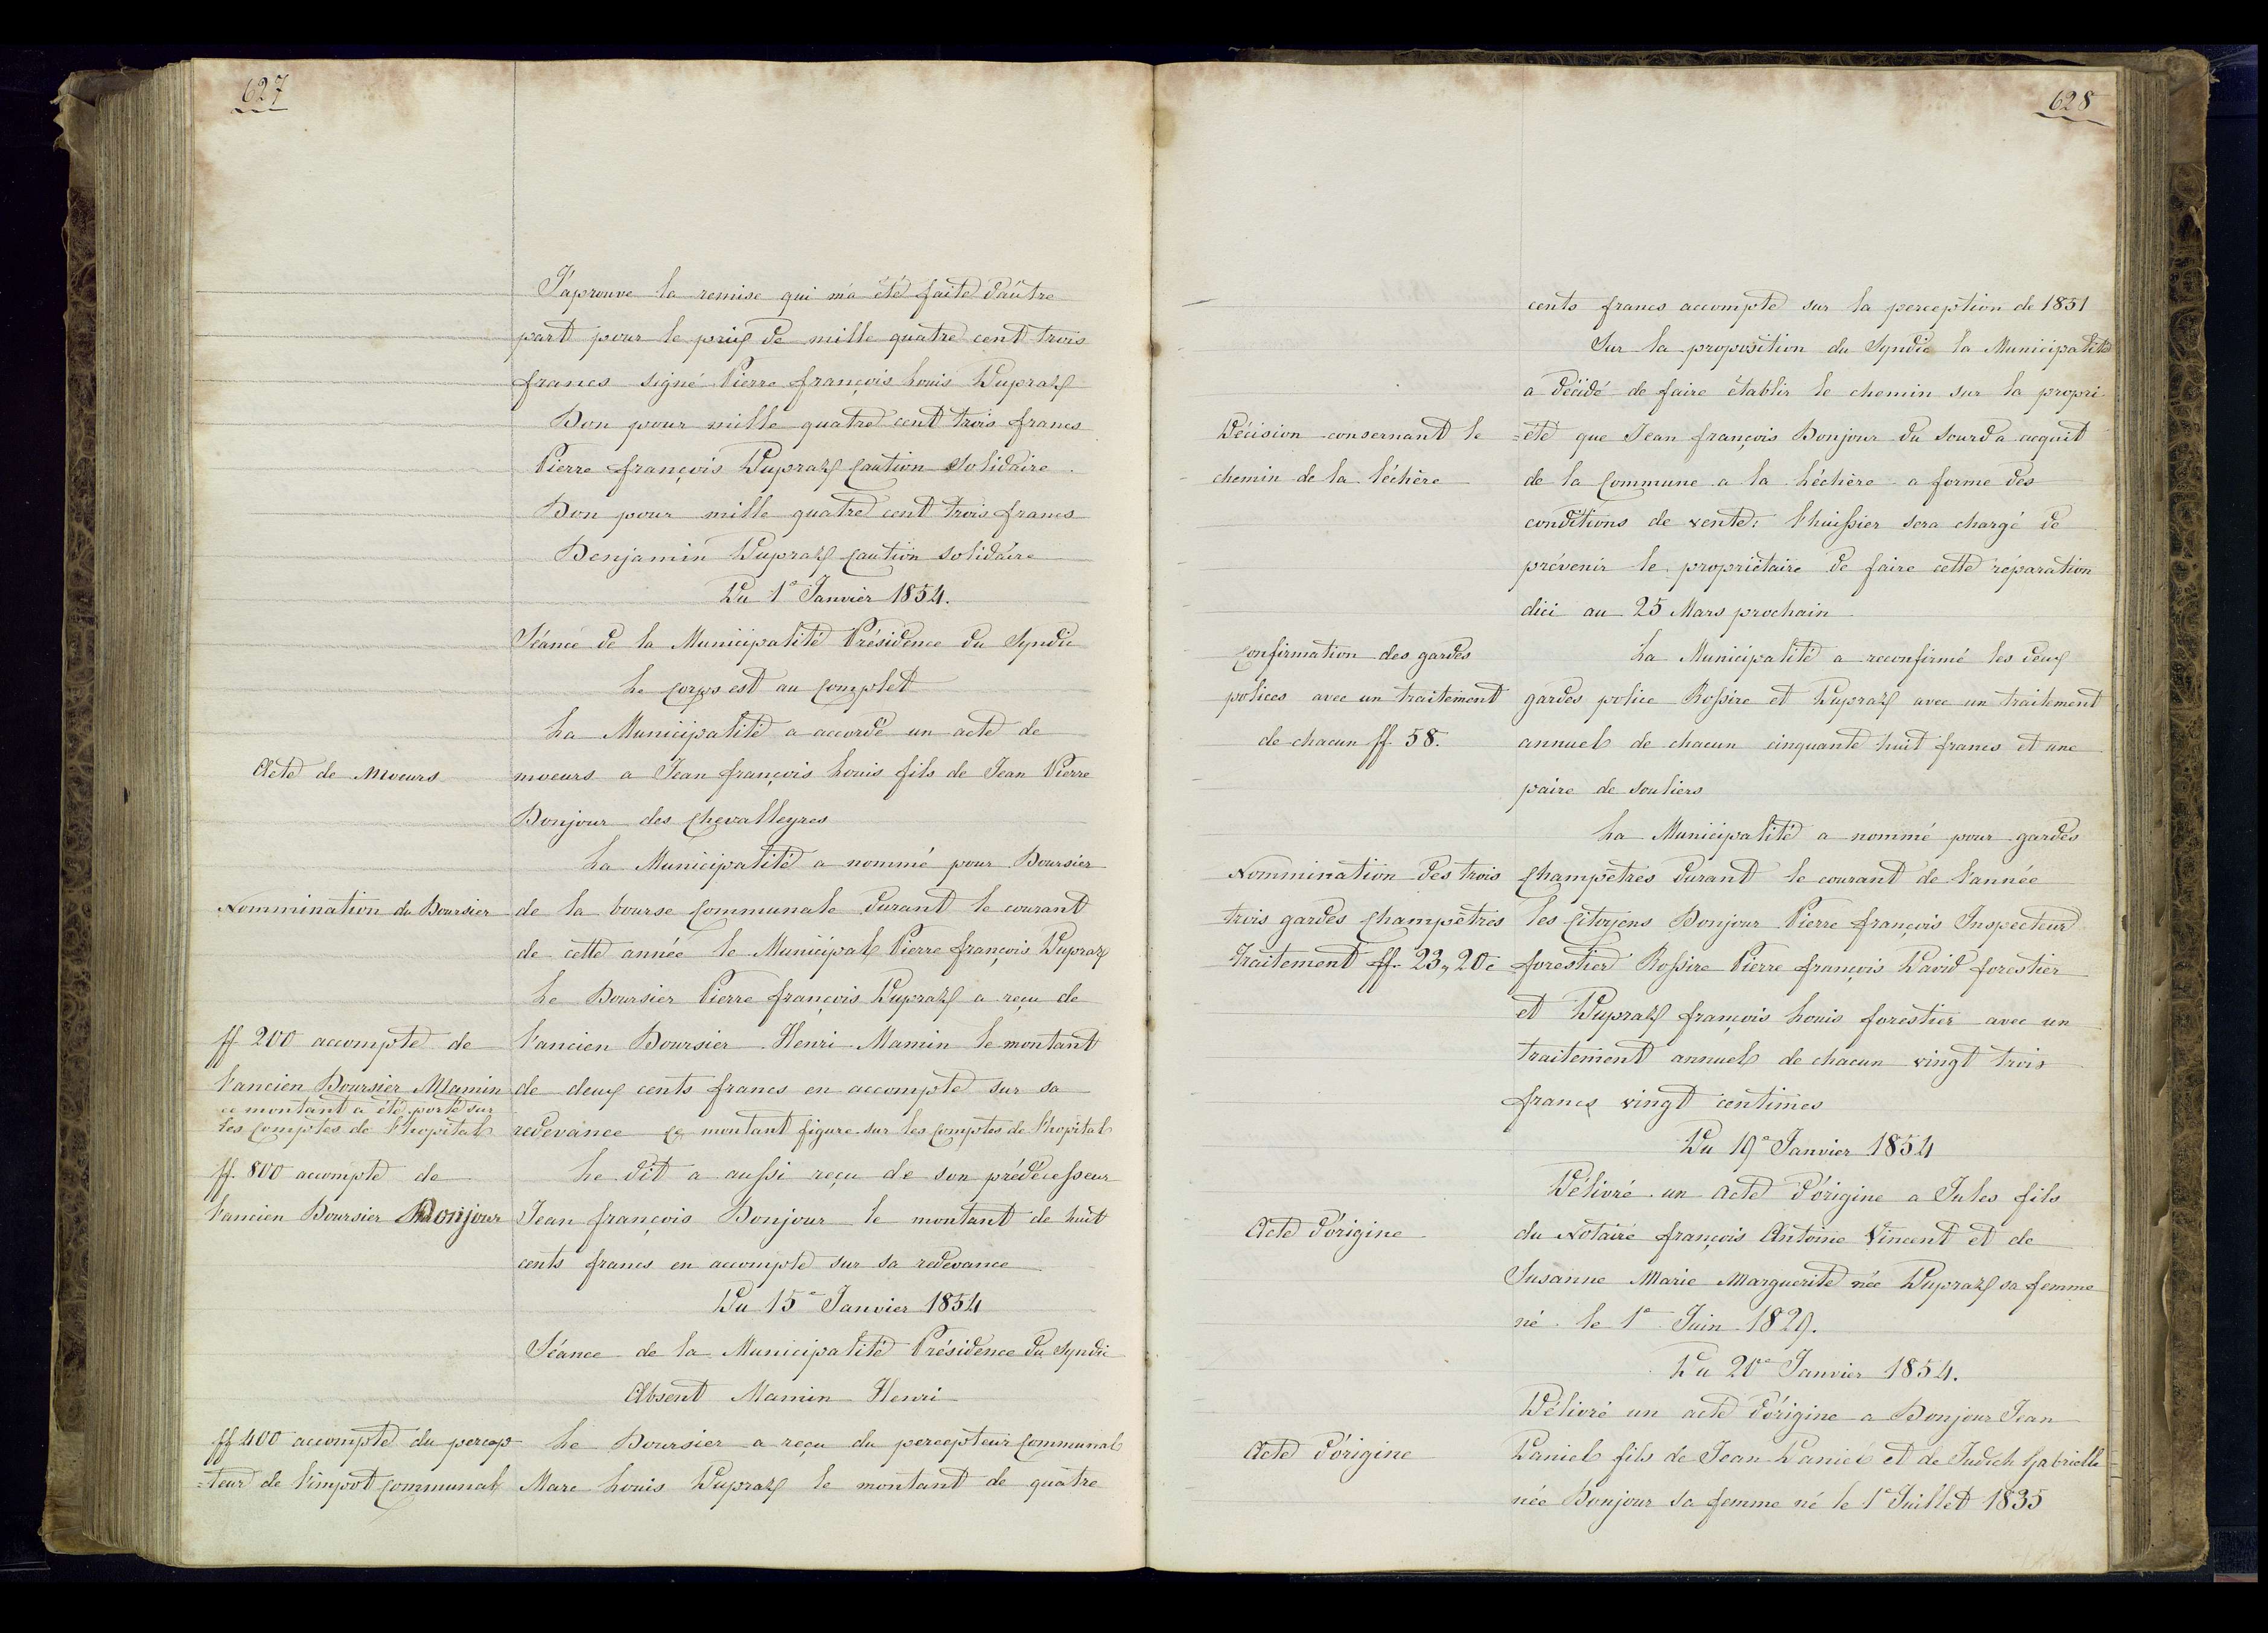 627
J'aprouve la remise qui m'a été faite d'autre
part pour le prix de mille quatre cent trois
francs signé Pierre françois Louis Dupraz
Bon pour mille quatre cent trois francs
Pierre françois Dupraz Caution Solidaire
Bon pour mille quatre cent trois francs
Benjamin Dupraz Caution solidaire
Du 1e Janvier 1854.
Séance de la Municipalité Présidence du Syndic
Le Corps est au Complet
La Municipalité a accordé un acte de
Acte de Moeurs
moeurs a Jean françois Louis fils de Jean Pierre
Bonjour des Chevalleyres
La Municipalité a nommé pour Boursier
Nommination du Boursier
de la bourse Communale durant le courant
de cette année le Municipal Pierre françois Dupraz
Le Boursier Pierre françois Dupraz a reçu de
ff 200 accompte de
l'ancien Boursier Henri Mamin le montant
l'ancien Boursier Mamin
de deux cents francs en accompte sur sa
ce montant a été porté sur
les Comptes de l'hopital
redevance ce montant figure sur les Comptes de l'hopital
ff. 800 accompte de
Le dit a aussi reçu de son prédécesseur
l'ancien Boursier Bonjour
Jean françois Bonjour le montant de huit
cents francs en accompte sur sa redevance
Du 15e Janvier 1854
Séance de la Municipalité Présidence du Syndic
Absent Mamin Henri
ff 400 accompte du percep
Le Boursier a reçu du percepteur Communal
=teur de l'impot Communal
Marc Louis Dupraz le montant de quatre
628
cents francs accompte sur la perception de 1851
Sur la proposition du Syndic la Municipalité
a décidé de faire établir le chemin sur la propri
Décision consernant le
=été que Jean françois Bonjour du Sourd a acquit
chemin de la léchère
de la Commune a la Léchère a forme des
conditions de vente: l'huissier sera chargé de
prévenir le propriétaire de faire cette réparation
dici au 25 Mars prochain
Confirmation des gardes
La Municipalité a reconfirmé les deux
polices avec un traitement
gardes police Rossire et Dupraz avec un traitement
de chacun ff. 58.
annuel de chacun cinquante huit francs et une
paire de souliers
La Municipalité a nommé pour gardes
Nommination des trois
Champetres durant le courant de l'année
trois gardes Champêtres
les Citoyens Bonjour Pierre françois Inspecteur
Traitement ff. 23,, 20 c
forestier Rossire Pierre françois David forestier
et Dupraz françois Louis forestier avec un
traitement annuel de chacun vingt trois
francs vingt centimes
Du 19e Janvier 1854
Délivré un Acte d'origine a Jules fils
Acte d'origine
du Notaire françois Antoine Vincent et de
Susanne Marie Marguerite née Dupraz sa femme
né le 1e Juin 1829.
Du 20e Janvier 1854.
Délivré un acte d'origine a Bonjour Jean
Acte d'origine
Daniel fils de Jean Daniel et de Judich Gabrielle
née Bonjour sa femme né le 1e Juillet 1835